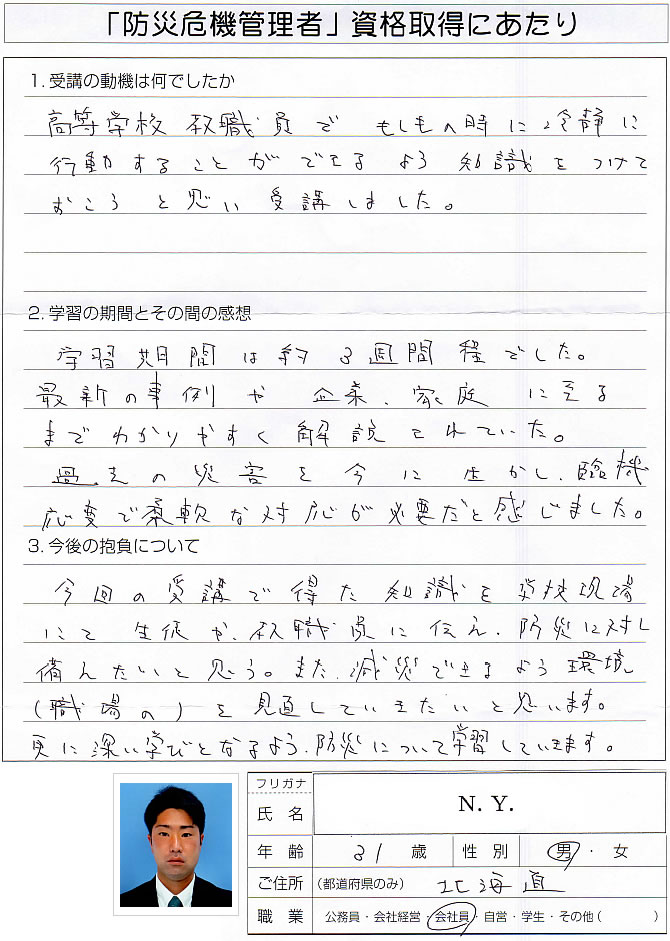 「防災危機管理者」資格取得にあたり
1. 受講の動機は何でしたか
高等学校教職員でもしもの時に冷静に
行動することができるよう知識をつけて
おこうと思い受講しました。
2. 学習の期間とその間の感想
学習期間は約3週間程でした。
最新の事例や企業、家庭に至る
までわかりやすく解説されていた。
過去の災害を今に生かし、臨機
応変で柔軟な対応が必要だと感じました。
3. 今後の抱負について
今回の受講で得た知識を学校現場
にて生徒や、教職員に伝え、防災に対し
備えたいと思う。また、減災できるよう環境
(職場の)を見直していきたいと思います。
更に深い学びとなるよう、防災について学習していきます。
フリガナ
氏名 N. Y.
年齢 31 歳 性別 男・女
ご住所 (都道府県のみ) 北海道
職業 公務員・会社経営・会社員・自営・学生・その他( )